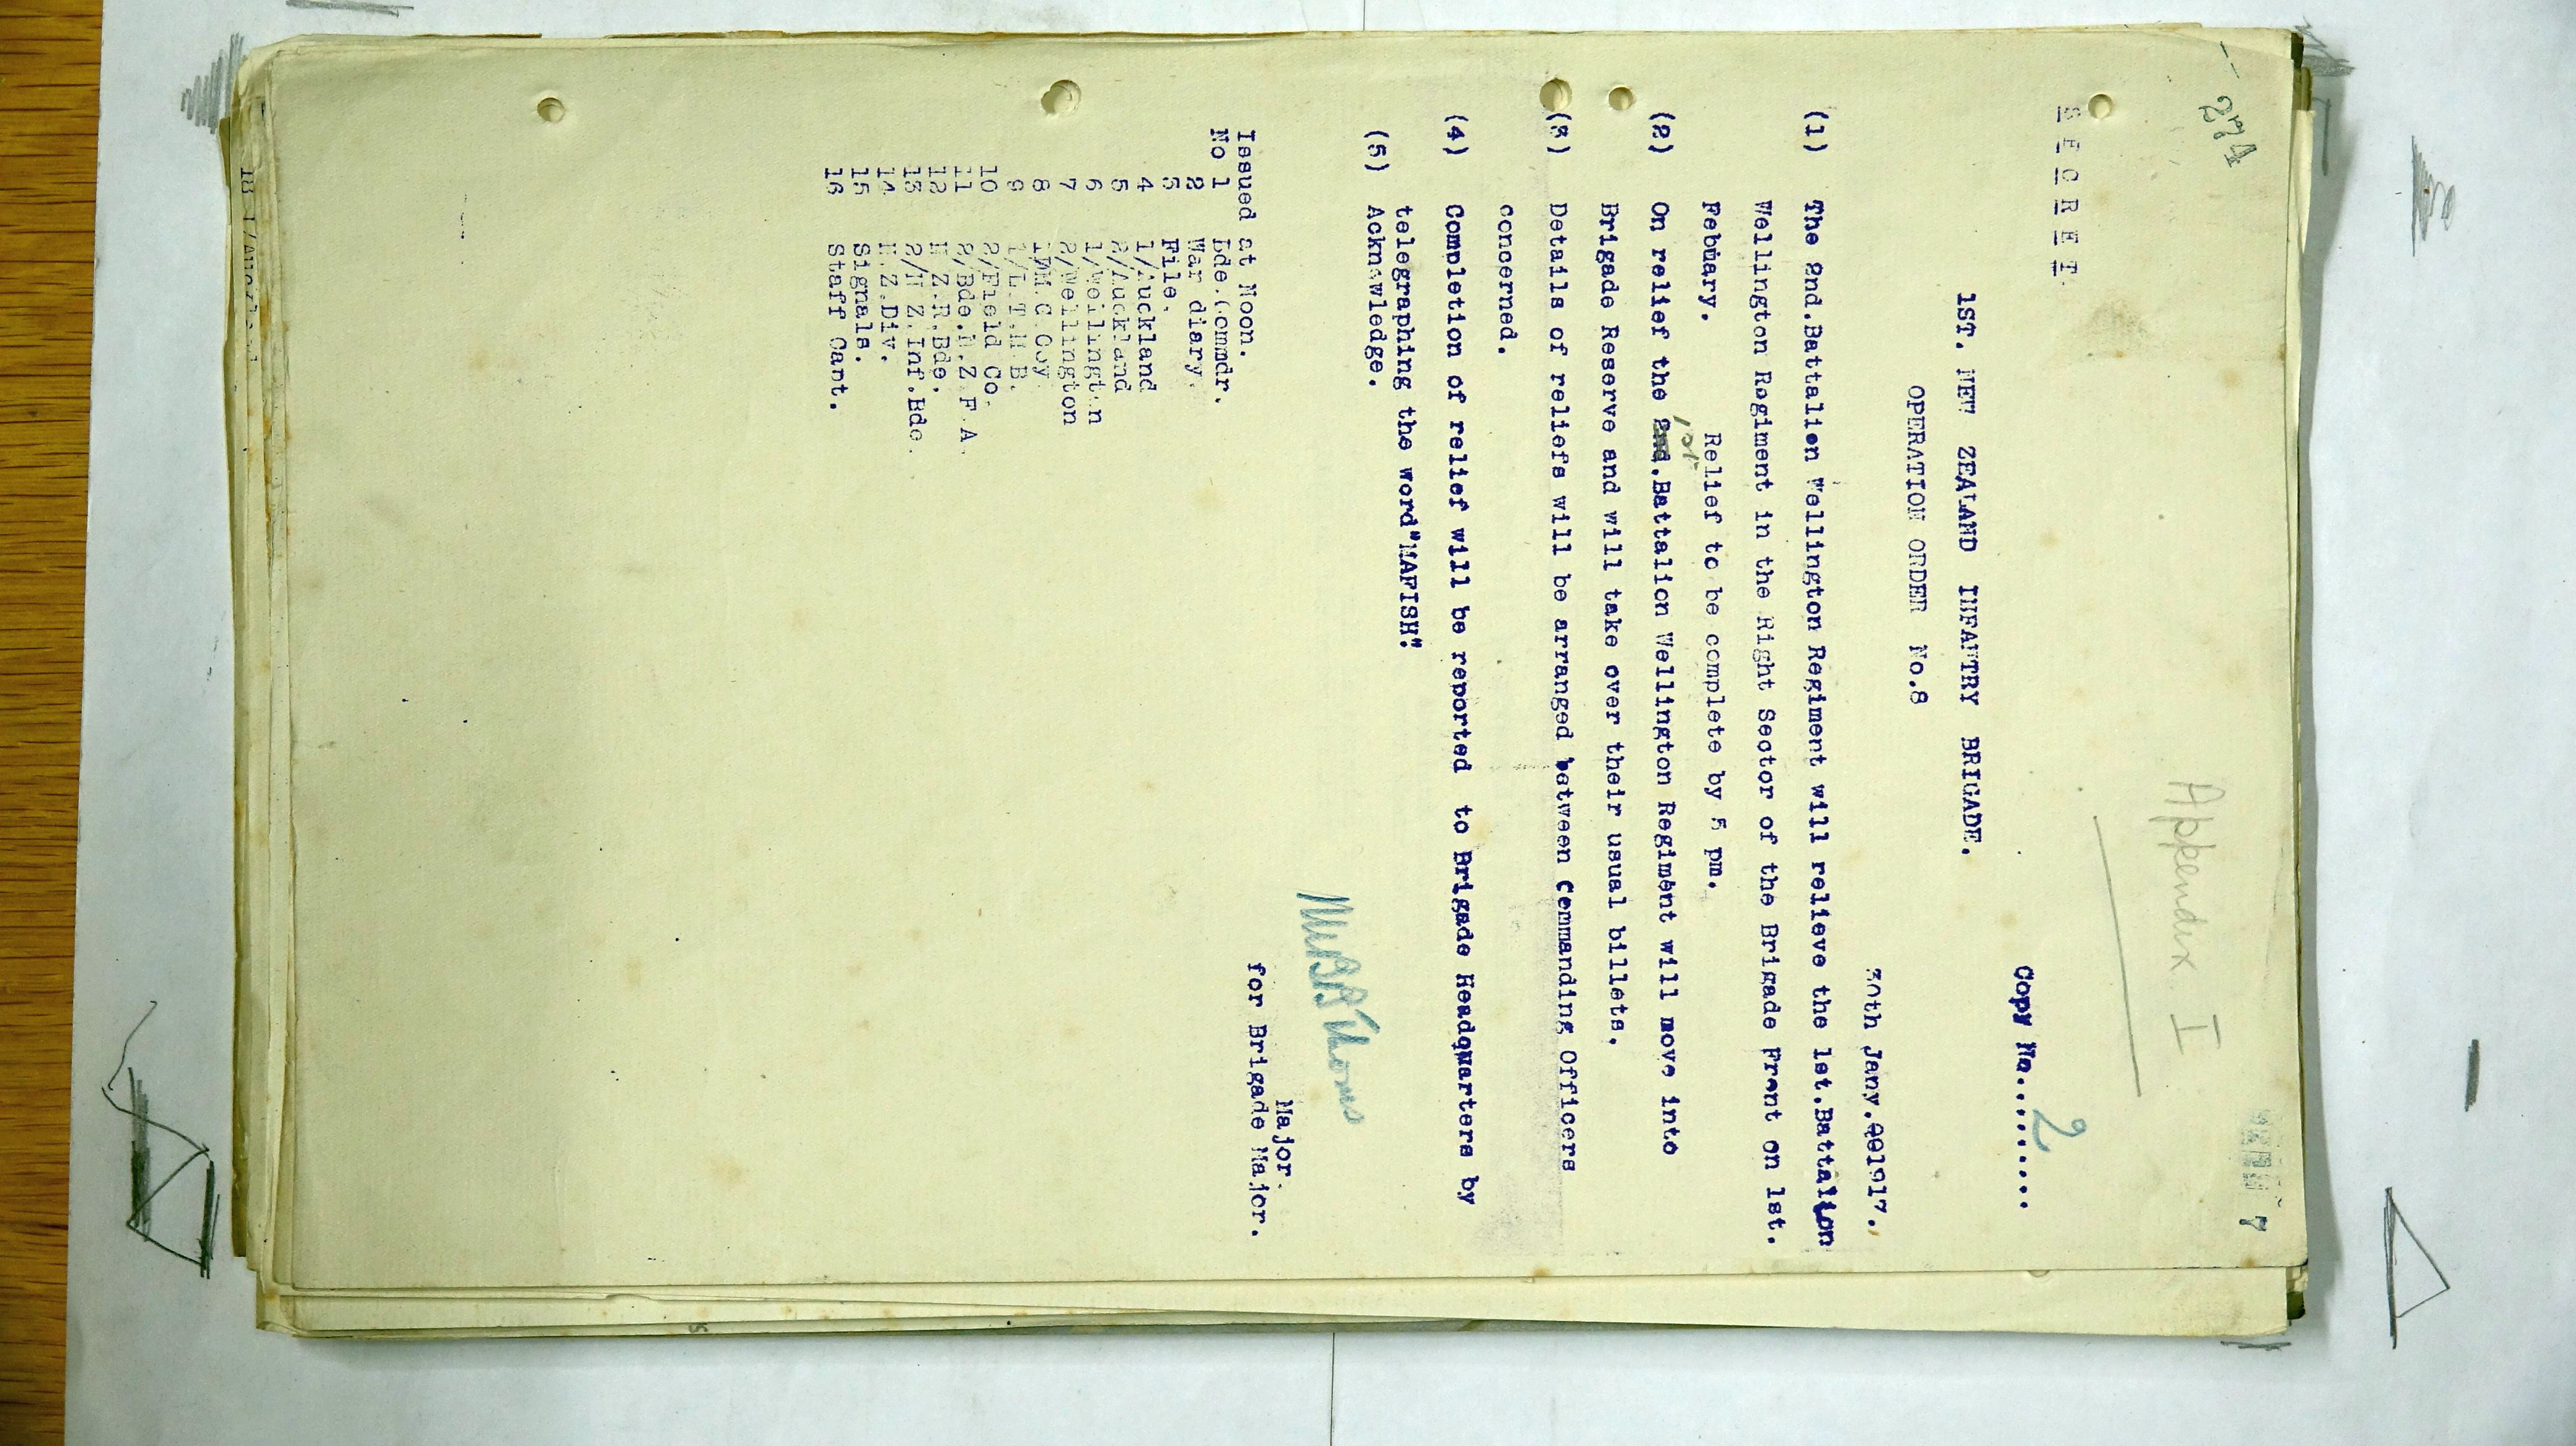 274
Appendix I
SECRET
Copy No..........2
1ST. NEW ZEALAND INFANTRY BRIGADE.
OPERATION ORDER No.8
30th Jany. 1917.
(1) The 2nd.Battalion Wellington Regiment will relieve the 1st.Battalion
Wellington Regiment in the Right Sector of the Brigade Front on 1st.
Febuary. Relief to be complete by 5 pm.
1st
(2) On relief the 2nd.Battalion Wellington Regiment will move into
Brigade Reserve and will take over their usual billets.
(3) Details of reliefs will be arranged between Commanding Officers
concerned.
(4) Completion of relief will be reported to Brigade Headquarters by
telegraphing the word"MAFISH"
(5) Acknowledge.
Major.
for Brigade Major.
Issued at Noon.
No 1 Bde.Commdr.
2 War diary.
3 File.
4 1/Auckland
5 2/Auckland
6 1/Wellington
7 2/Wellington
8 M.G.Coy
9 1/L.T.M.B.
10 2/Field Co.
11 2/Bde.N.Z.F.A.
12 N.Z.R.Bde.
13 2/N.Z.Inf.Bde.
14 N.Z.Div.
15 Signals.
16 Staff Capt.